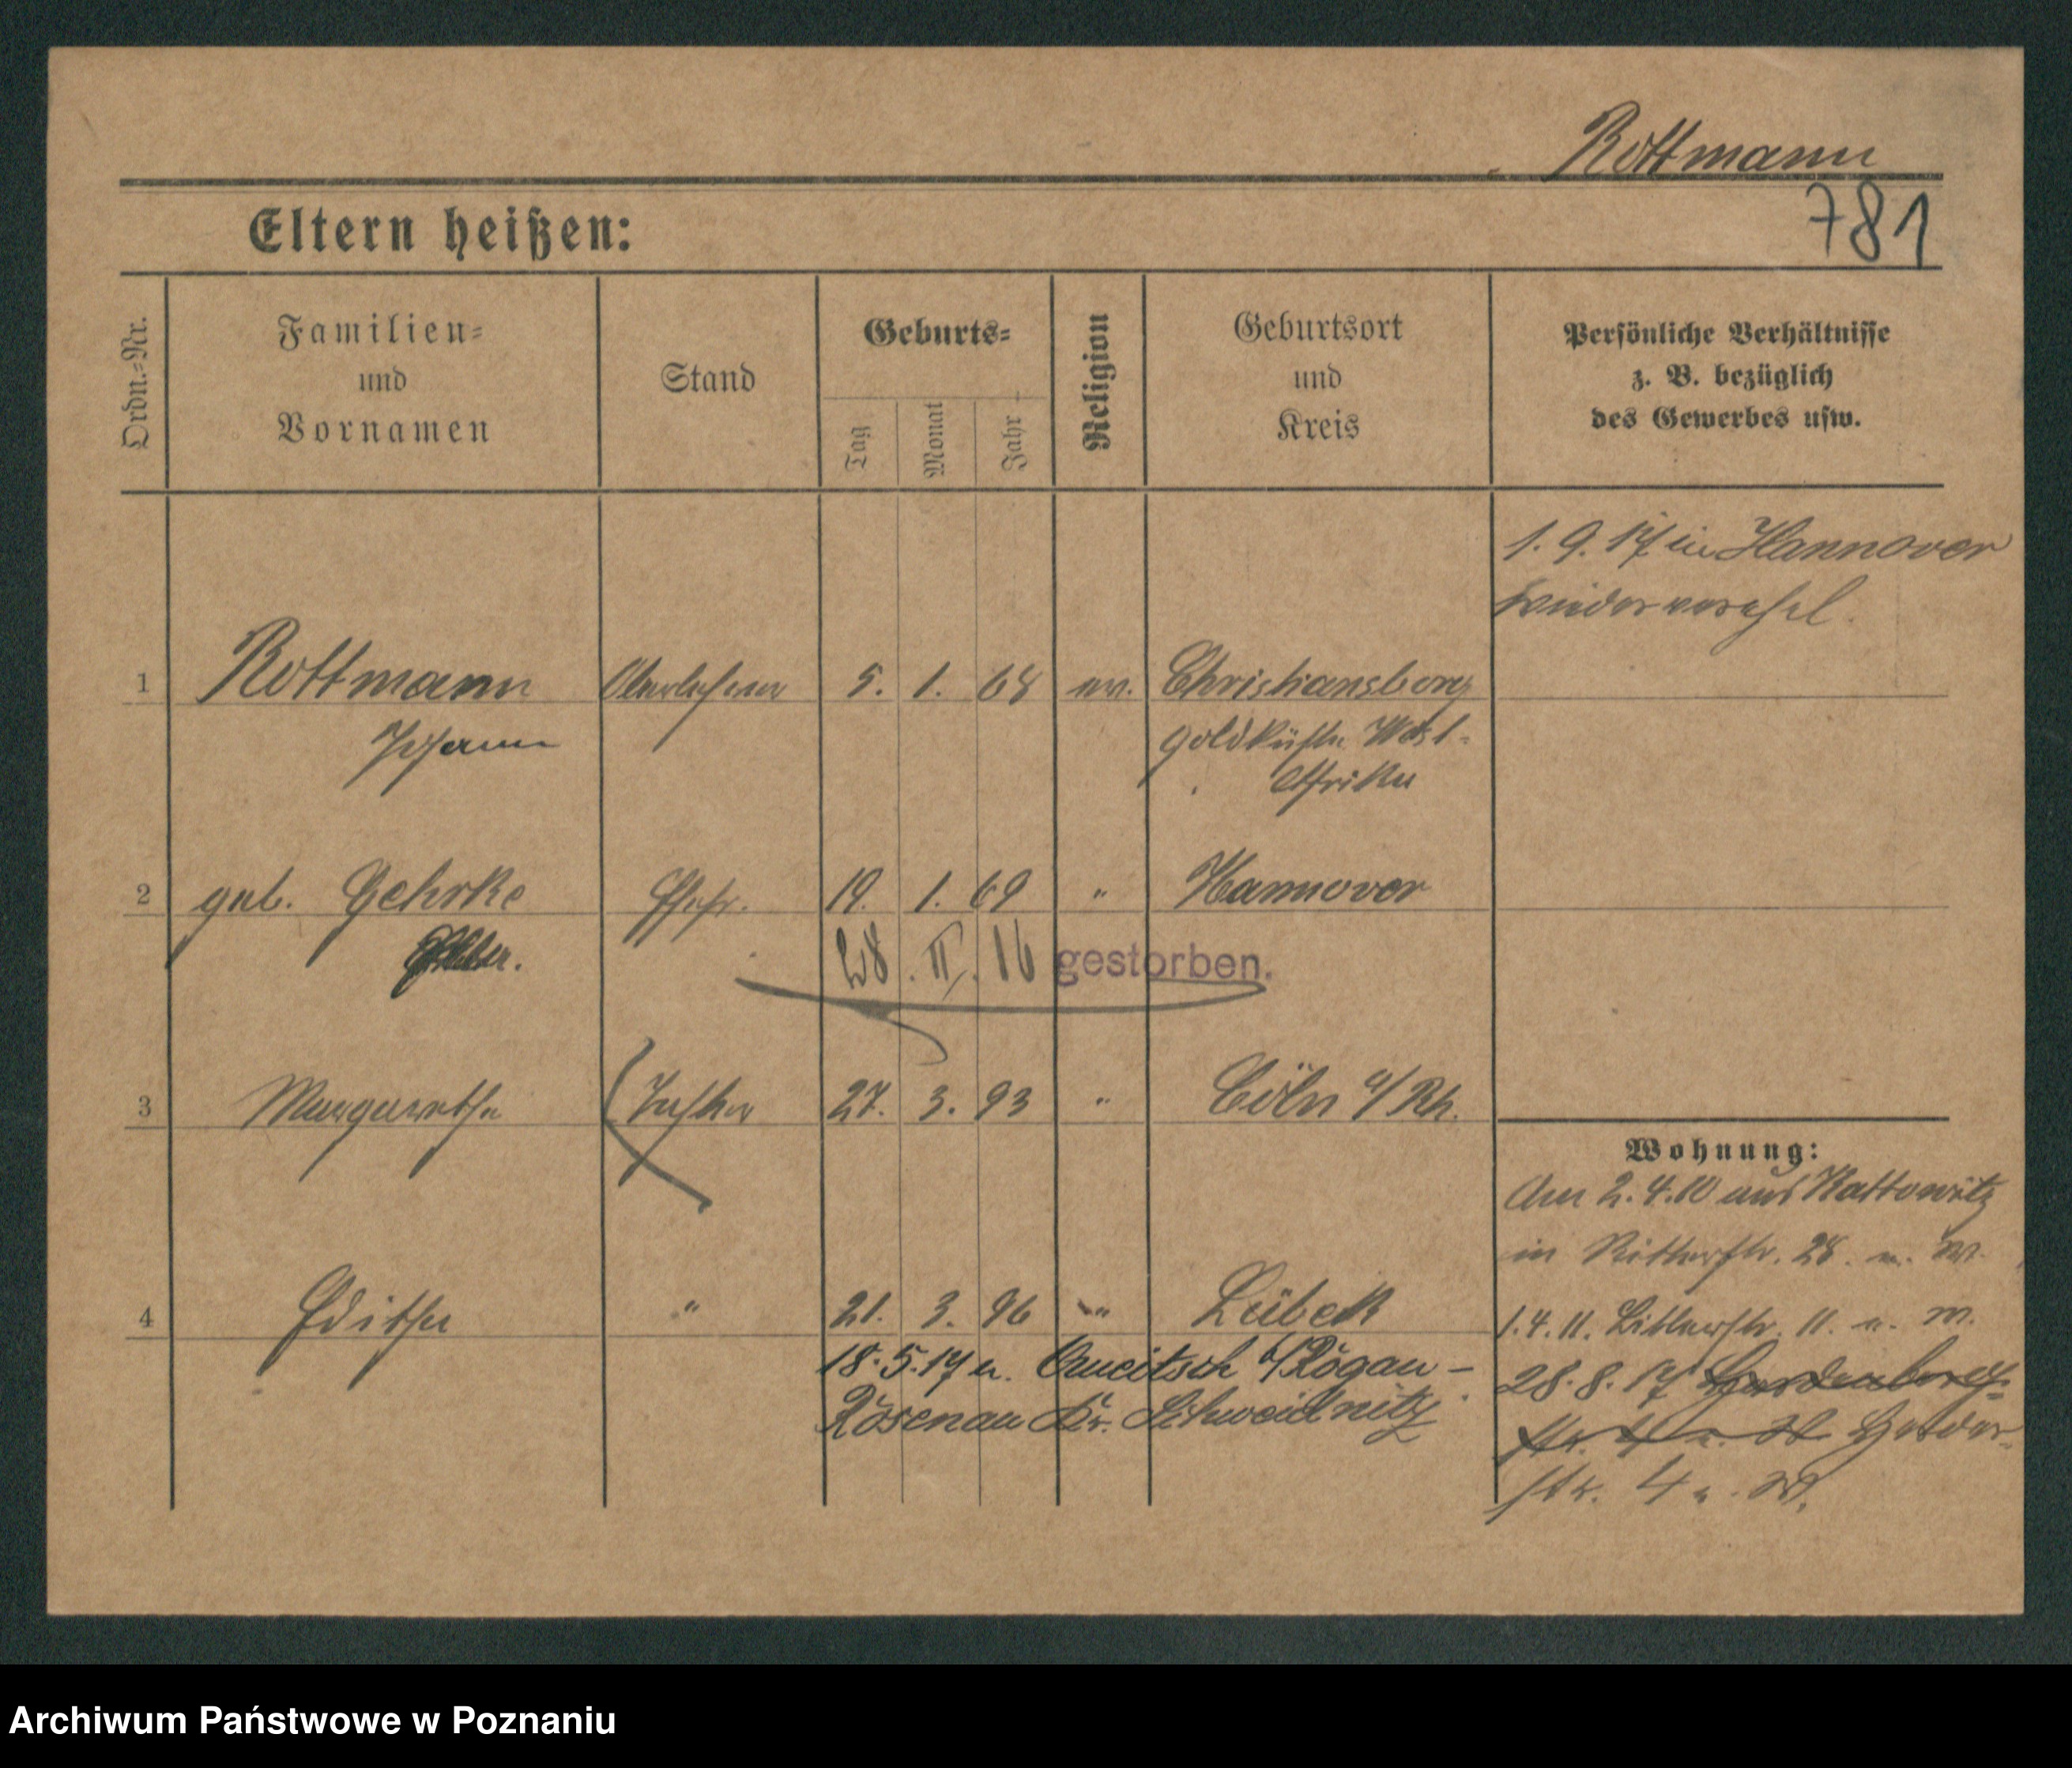 Rottmann
781
Eltern heißen:
Ordn.-Nr.
Familien-
und
Vornamen
Stand
Geburts-
Tag
Monat
Jahr
Religion
Geburtsort
und
Kreis
Persönliche Verhältnisse
z. B. bezüglich
des Gewerbes usw.
1. 9. 17 in Hannover
wieder verehel.
1 Rottmann Oberlehrer 5. 1. 68 ev. Christiansborg
Johann Goldküste West-
Afrika
2 geb. Gehrke Ehefr. 19. 1. 69 " Hannover
28. II. 16 gestorben.
3 Margarethe Tochter 27. 3. 93 " Cöln a/Rh.
Wohnung:
Am 2. 4. 10 aus Kattowitz
in Ritterstr. 28. u. W.
4 Editha " 21. 3. 96 " Lübeck
1. 4. 11. 11. u. W.
18. 5. 17 n. b/Rogau-
Rosenau Kr. Schweidnitz
28. 8. 17 Hardenberg-
str. 4 u. W. Herder-
str. 4 u. W.
Archiwum Państwowe w Poznaniu